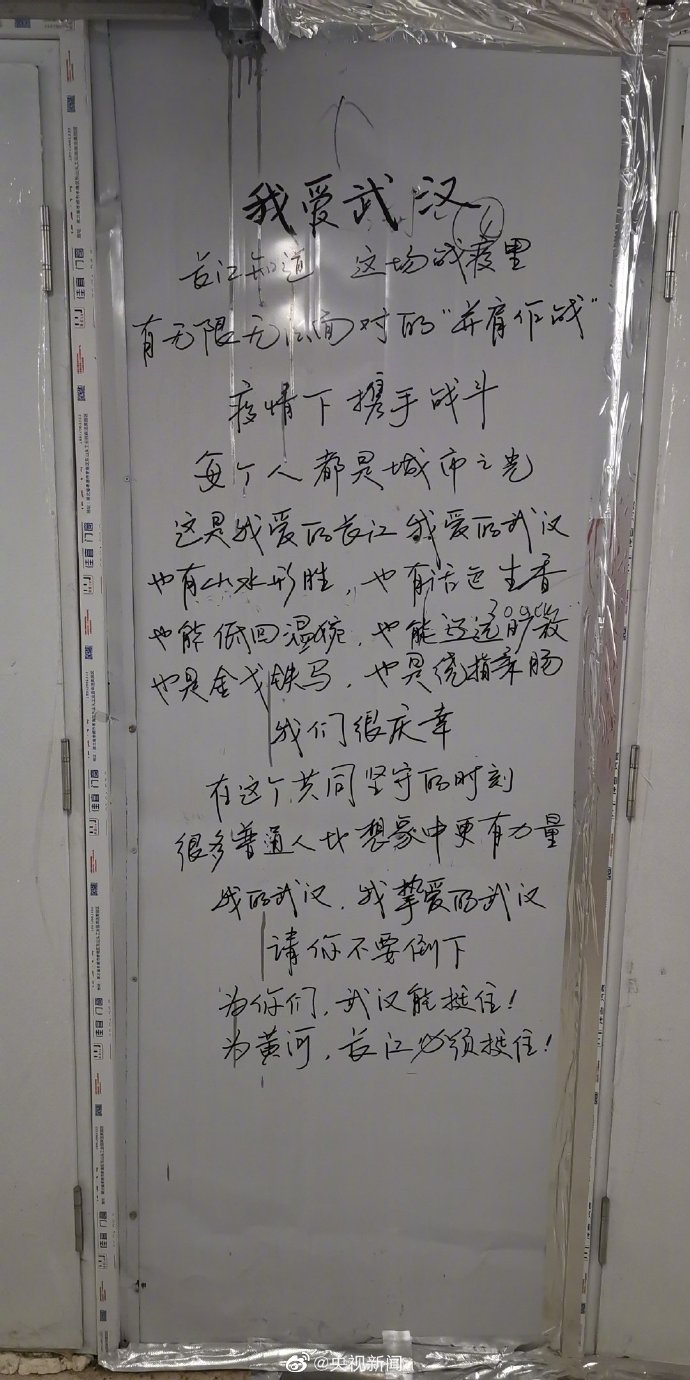 我爱武汉
长江知道 这场战疫里
有无限无法面对的“并肩作战”
疫情下携手战斗
每个人都是城市之光
这是我爱的长江 我爱的武汉
也有山水形胜，也有活色生香
也能低回温婉，也能
也是金戈铁马，也是绕指柔肠
我们很庆幸
在这个共同坚守的时刻
很多普通人比想象中更有力量
我的武汉，我挚爱的武汉
请你不要倒下
为你们，武汉能挺住！
为黄河，长江必须挺住！
佳音门窗
@央视新闻